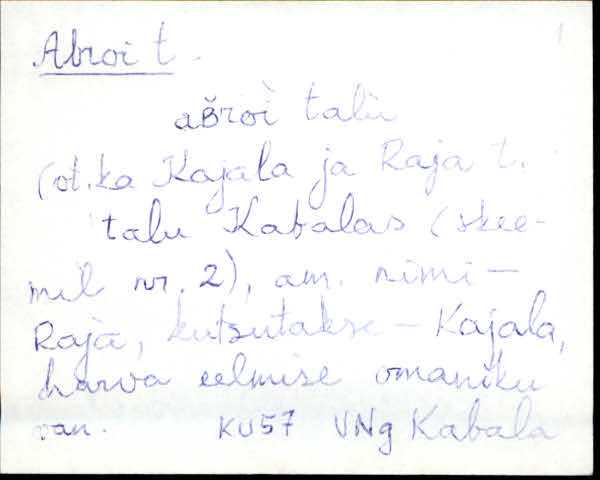 Abroi t.
1
aʙ̌roì talù
(vt. ka Kajala ja Raja t.
talu Kabalas (skee-
mil nr. 2), am. nimi —
Raja, kutsutakse — Kajala,
harva eelmise omaniku
van. KU57 VNg Kabala